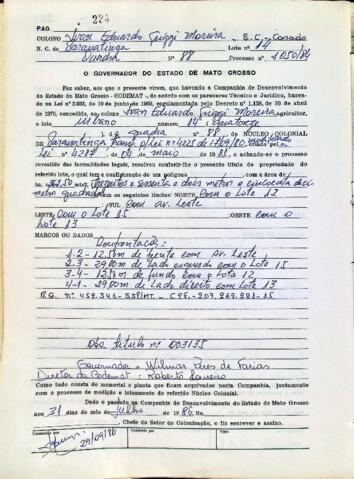 PAG. 224
COLONO Ivan Eduardo Moreira - B.C. - Casado
N. C. de Paranatinga Lote nº 14
Quadra Nº 88 Processo nº 1050/84
O GOVERNADOR DO ESTADO DE MATO GROSSO
Faz saber, aos que o presente virem, que havendo a Companhia de Desenvolvimento
do Estado de Mato Grosso - CODEMAT -, de acordo com os pareceres Técnico e Jurídico, basea-
dos na Lei nº 2.883, de 19 de junho de 1968, regulamentada pelo Decreto nº 1.138, de 30 de abril
de 1970, concedido ao colono Ivan Eduardo Moreira agricultor,
o lote Urbano nº 14 - quatorze
da quadra nº 88, do NÚCLEO COLONIAL
de Paranatinga Lei nº 4225 criado pela
Lei nº 4287 de maio de 1981, e achando-se o processo
revestido das formalidades legais, resolve conferir-lhe o presente título de propriedade
do referido lote, o qual tem a configuração de um polígono com a área de
ha. 362,50 Trezentos e sessenta e dois metros e cincoenta deci-
metro quadrados os seguintes limites: NORTE: Com o Lote 12
SUL Com av. Leste
LESTE Com o Lote 15 OESTE com o
Lote 13
MARCOS OU DADOS
Confrontações:
1-2 - 12.50m de frente com Av. Leste
2-3 - 29.00m de Lado esquerdo com o Lote 15
3-4 - 12.50m de fundo com o Lote 12
4-1 - 29.00m de Lado direito com Lote 13
Obs título nº 003135
Governador - Wilmar Peres de Farias
Diretor da Codemat - Roberto Loureiro
Como tudo consta do memorial e planta que ficam arquivados nesta Companhia, juntamente
com o processo de medição e loteamento do referido Núcleo Colonial.
Dado e passado na Companhia de Desenvolvimento do Estado de Mato Grosso
aos 31 dias do mês de Julho de 1986
Chefe do Setor de Colonização, o fiz escrever e assino.
29/09/86